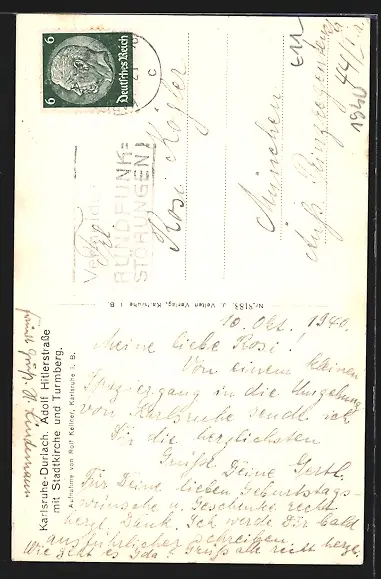 Deutsches Reich
6 6
RUNDFUNK=
STÖRUNGEN!
Frl.
Rosi Kogler
München
Äuß. Prinzregentenstr.
1940
Nr. 8188 J. Velten Verlag, Karlsruhe i. B.
Karlsruhe-Durlach. Adolf Hitlerstraße
mit Stadtkirche und Turmberg.
Aufnahme von Rolf Kellner, Karlsruhe i. B.
10. Okt. 1940.
Meine liebe Rosi!
Von einem kleinen
Spaziergang in die Umgebung
von Karlsruhe sendet ich
Dir die herzlichsten
Grüße Deine Gertl.
Für Deine lieben Geburtstags-
wünsche u. Geschenke recht
herzl. Dank. Ich werde Dir bald
ausführlicher schreiben.
Wie geht es Ida? Grüß alle recht herzl.